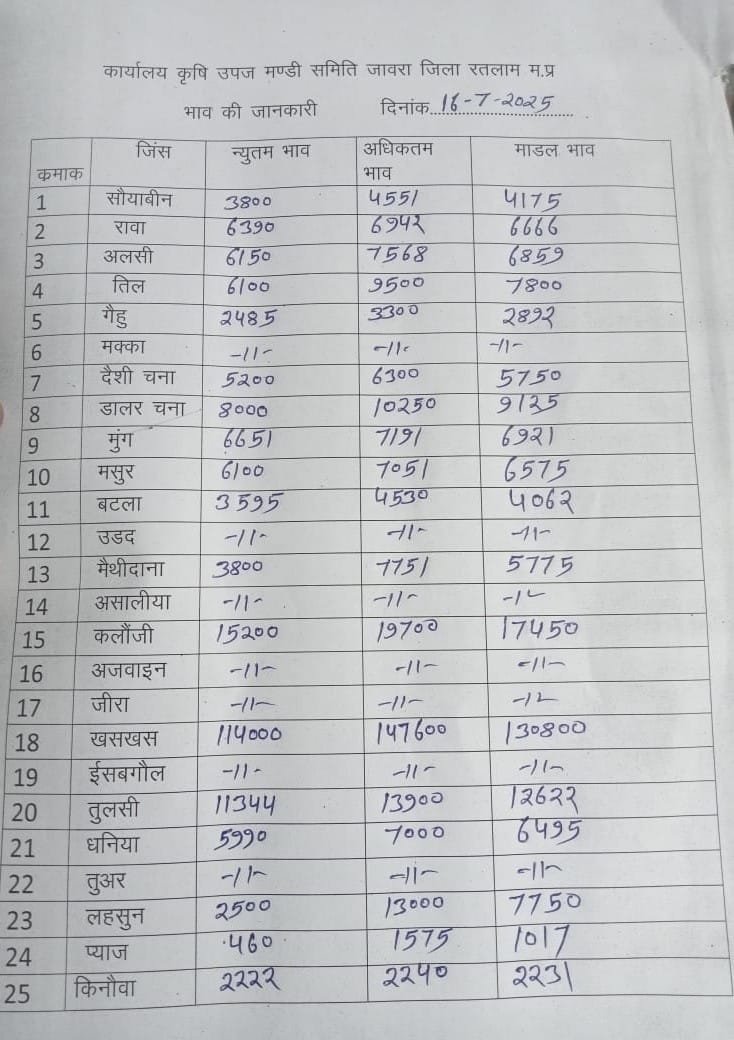 कार्यालय कृषि उपज मण्डी समिति जावरा जिला रतलाम म.प्र
भाव की जानकारी दिनांक..16-7-2025
कमाक जिंस न्युतम भाव अधिकतम भाव माडल भाव
1 सौयाबीन 3800 4551 4175
2 रावा 6390 6942 6666
3 अलसी 6150 7568 6859
4 तिल 6100 9500 7800
5 गैहु 2485 3300 2892
6 मक्का -11- -11- -11-
7 दैशी चना 5200 6300 5750
8 डालर चना 8000 10250 9125
9 मुंग 6651 7191 6921
10 मसुर 6100 7051 6575
11 बटला 3595 4530 4062
12 उडद -11- -11- -11-
13 मैथीदाना 3800 7751 5775
14 असालीया -11- -11- -11-
15 कलौंजी 15200 19700 17450
16 अजवाइन -11- -11- -11-
17 जीरा -11- -11- -11-
18 खसखस 114000 147600 130800
19 ईसबगौल -11- -11- -11-
20 तुलसी 11344 13900 12622
21 धनिया 5990 7000 6495
22 तुअर -11- -11- -11-
23 लहसुन 2500 13000 7750
24 प्याज 460 1575 1017
25 किनौवा 2222 2240 2231